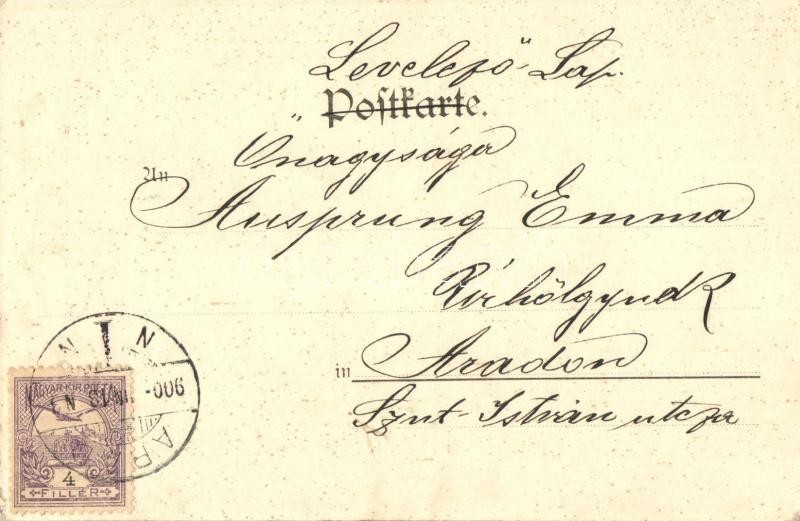 Levelező-Lap.
Postkarte.
Őnagysága
An
Ausprung Emma
Úrhölgynek
in Aradon
Sznt-István utcza
MAGYAR KIR. POSTA
4
FILLÉR